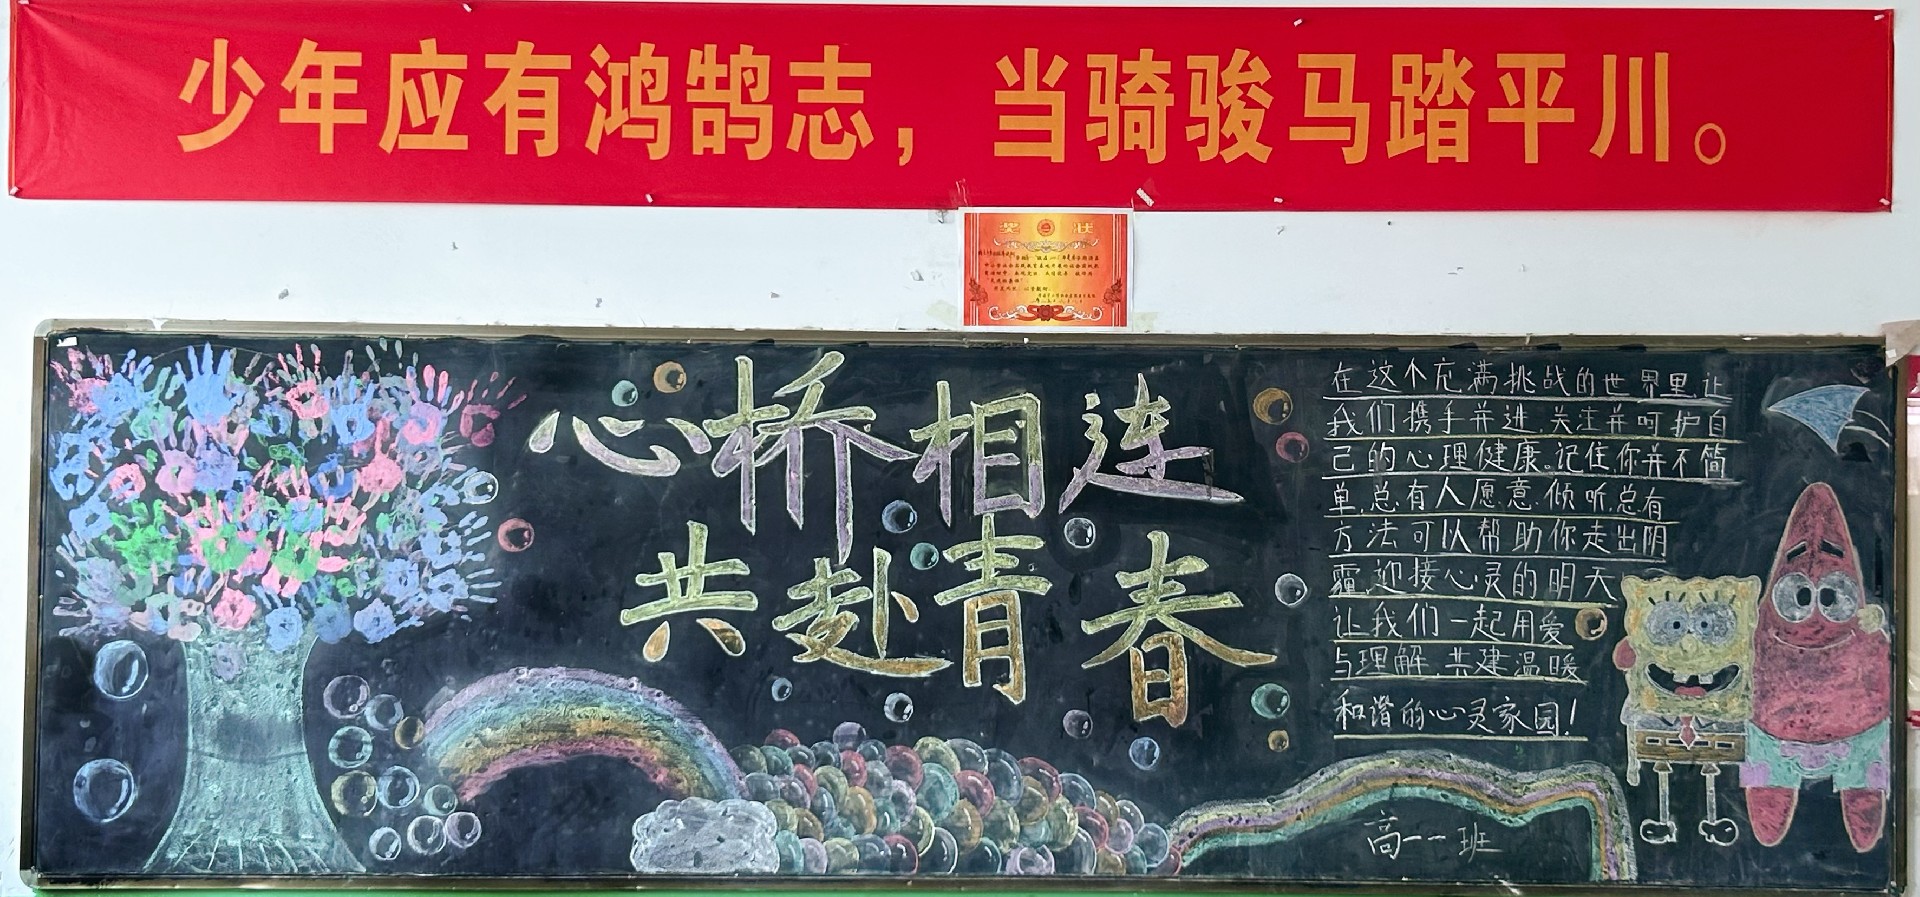 少年应有鸿鹄志，当骑骏马踏平川。
奖 状
心桥相连
共赴青春
在这个充满挑战的世界里,让
我们携手并进,关注并呵护自
己的心理健康。记住,你并不简
单,总有人愿意倾听,总有
方法可以帮助你走出阴
霾,迎接心灵的明天
让我们一起用爱
与理解,共建温暖
和谐的心灵家园!
高一一班